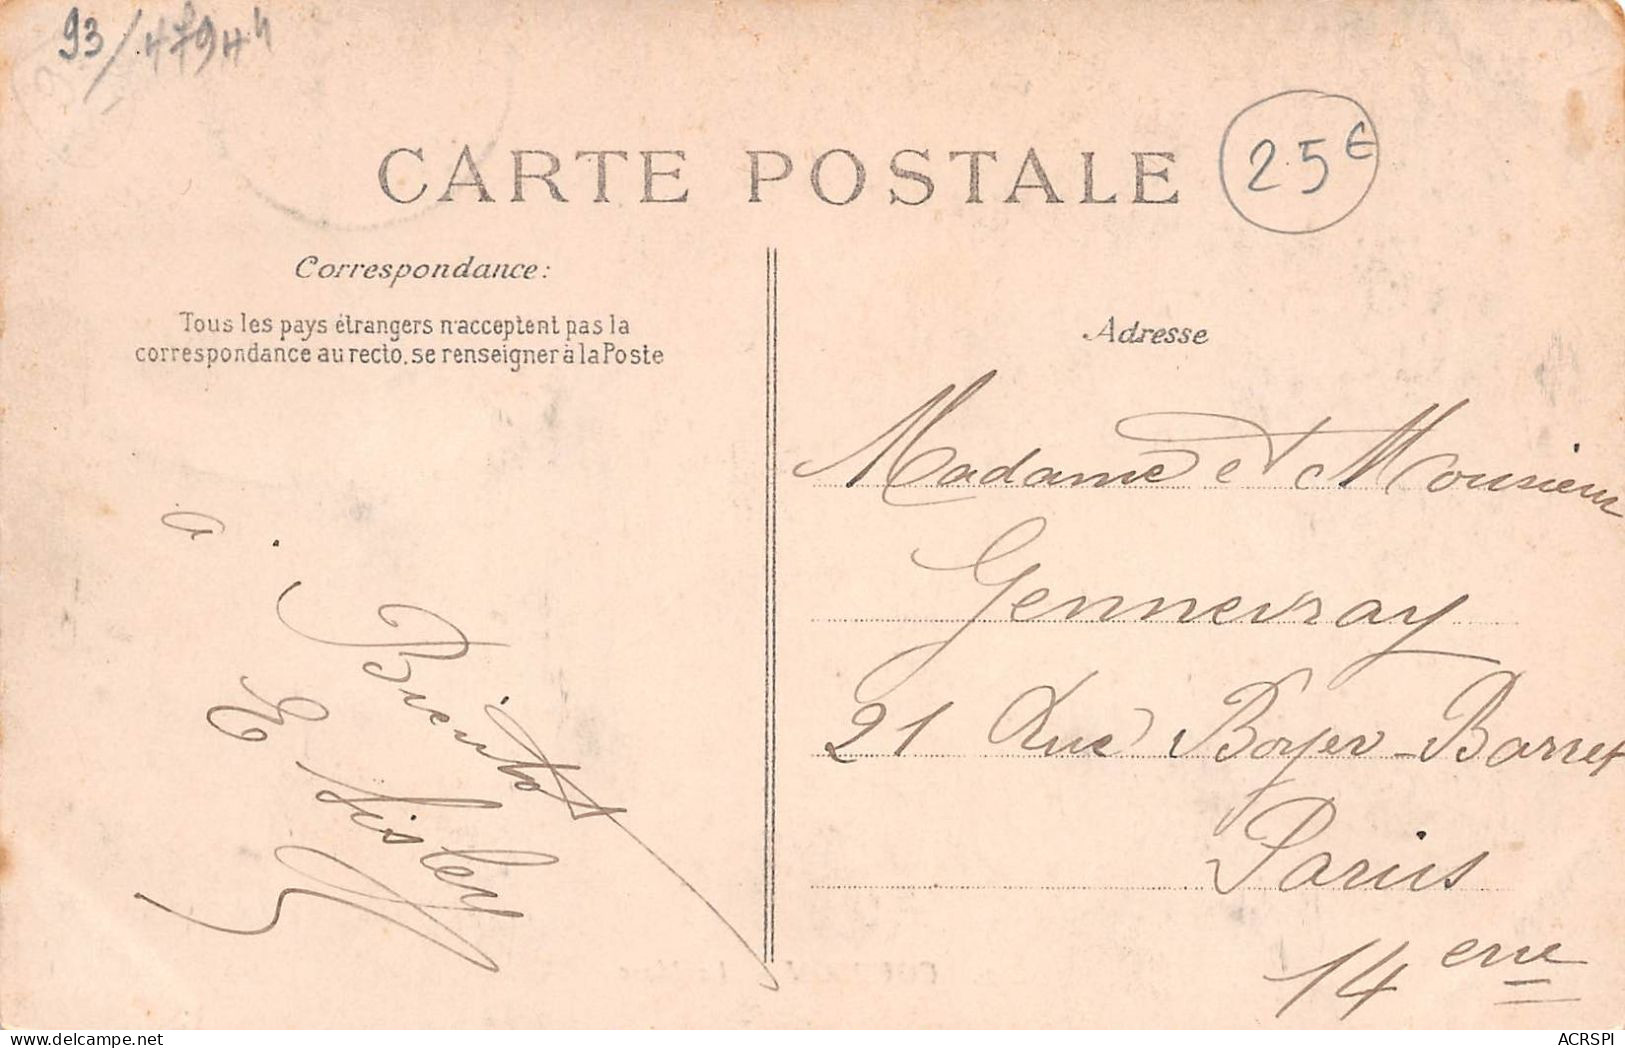 93/47944
CARTE POSTALE
25€
Correspondance:
Tous les pays étrangers n'acceptent pas la
correspondance au recto, se renseigner à la Poste
Adresse
Madame et Monsieur
Gennevray
21 Rue Boyer-Barret
Paris
14eme
a
Bientot
E
ACRSPI